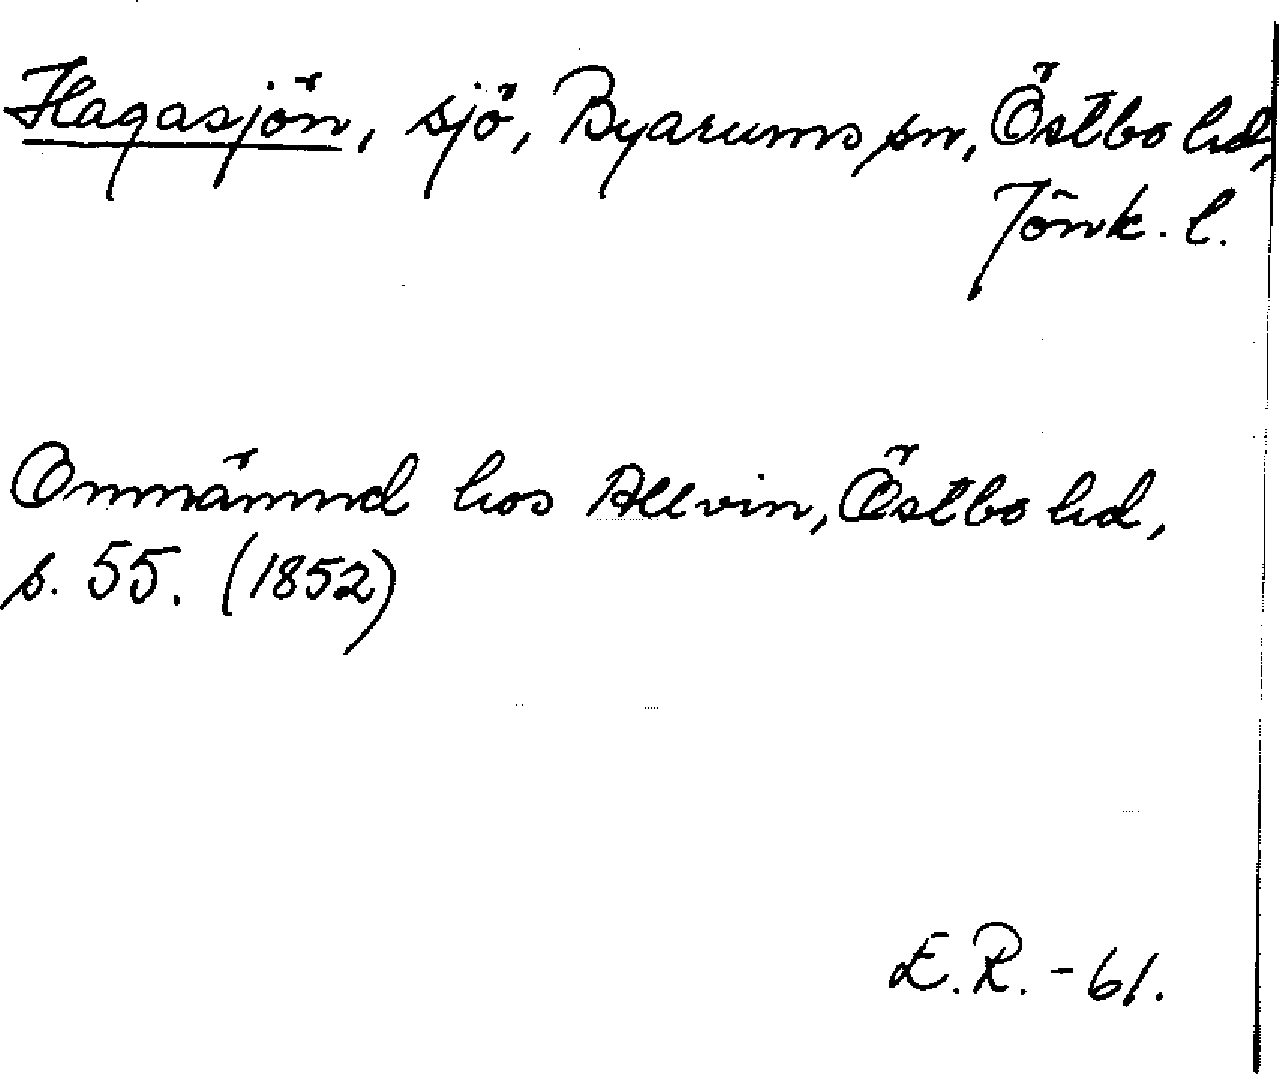 Hagasjön, sjö, Byarums sn, Östbo hd,
Jönk. l.
Omnämnd hos Allvin, Östbo hd,
s. 55. (1852)
E.R. -61.